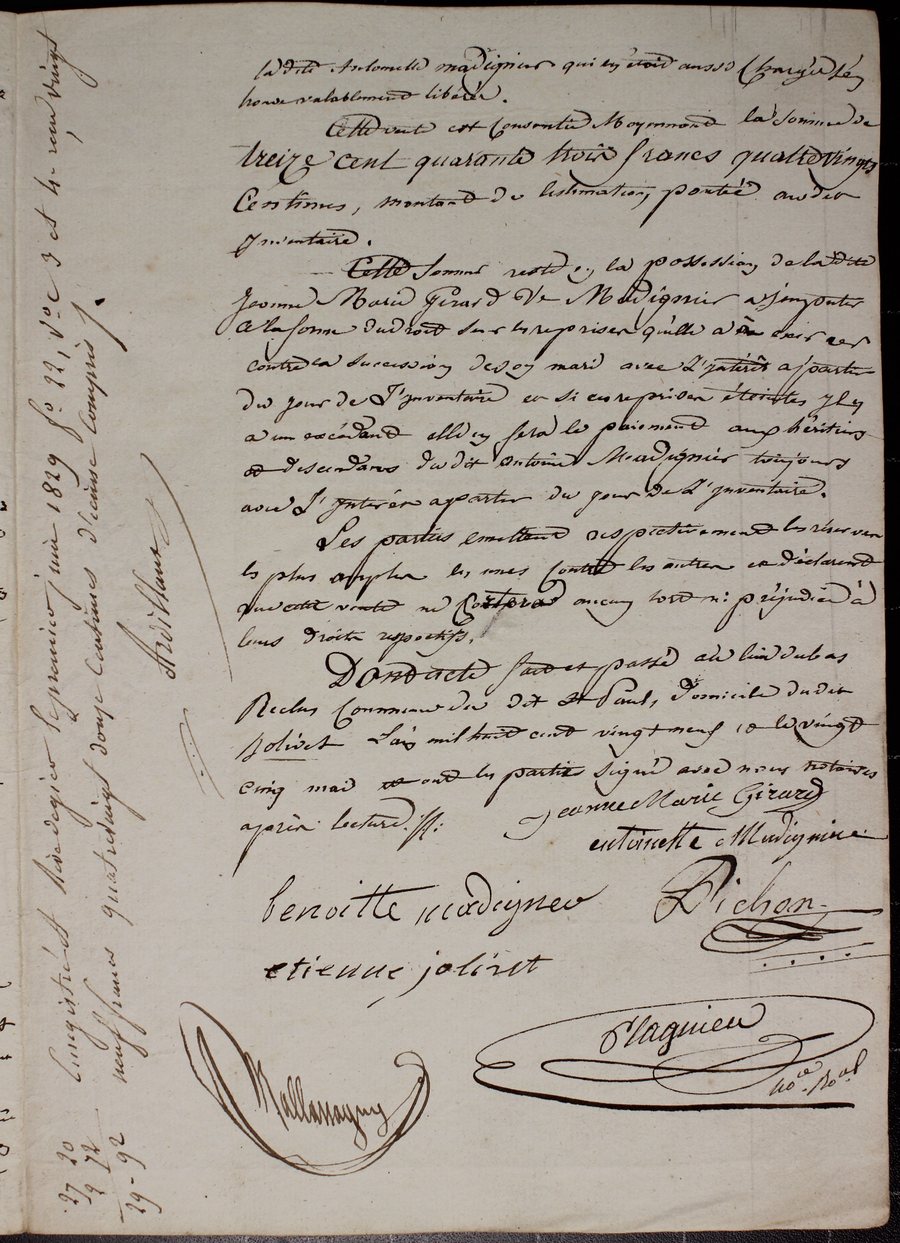 la dite Antoinette madignier qui en étoit aussi Chargée s'en
trouve valablement libérée.
Cette vente est Consentie Moyennant la somme de
treize cent quarante trois francs quatrevingts
Centimes, montant de l'estimation portée audit
inventaire.
Cette somme reste en la possession de la dite
Jeanne Marie Girard Ve Madignier
a la forme du droit sur les reprises qu'elle a a exercer
contre la succession de son mari avec L'intérêt a partir
du jour de L'inventaire et si ces reprises éteintes il y
a un excédant elle en fera le paiement aux héritiers
et descendans du dit Antoine Madignier toujours
avec L'intérêt apartir du jour de L'inventaire.
Les parties émettent respectivement les réserves
les plus amples les unes Contre les autres et déclarent
que cette vente ne Portera aucun tort ni préjudice à
leurs droits respectifs.
Dont acte fait et passé au lieu du bas
Reclus Commune du dit St Paul, Domicile dudit
Jolivet L'an mil huit cent vingt neuf et le vingt
cinq mai et ont les parties signé avec nous notaires
après lecture.
Jeanne Marie Girard
antoinette Madignier
benoitte madignier
Pichon
etienne jolivet
Plagnieu
No.re Ro.al
Mallassagny
Enregistré à Rivedegier le premier juin 1829 fo. 22, Vo c 3 et 4. reçu vingt
neuf francs quatrevingt douze centimes dixième compris.
Ardillard
27 20
2 72
29-92